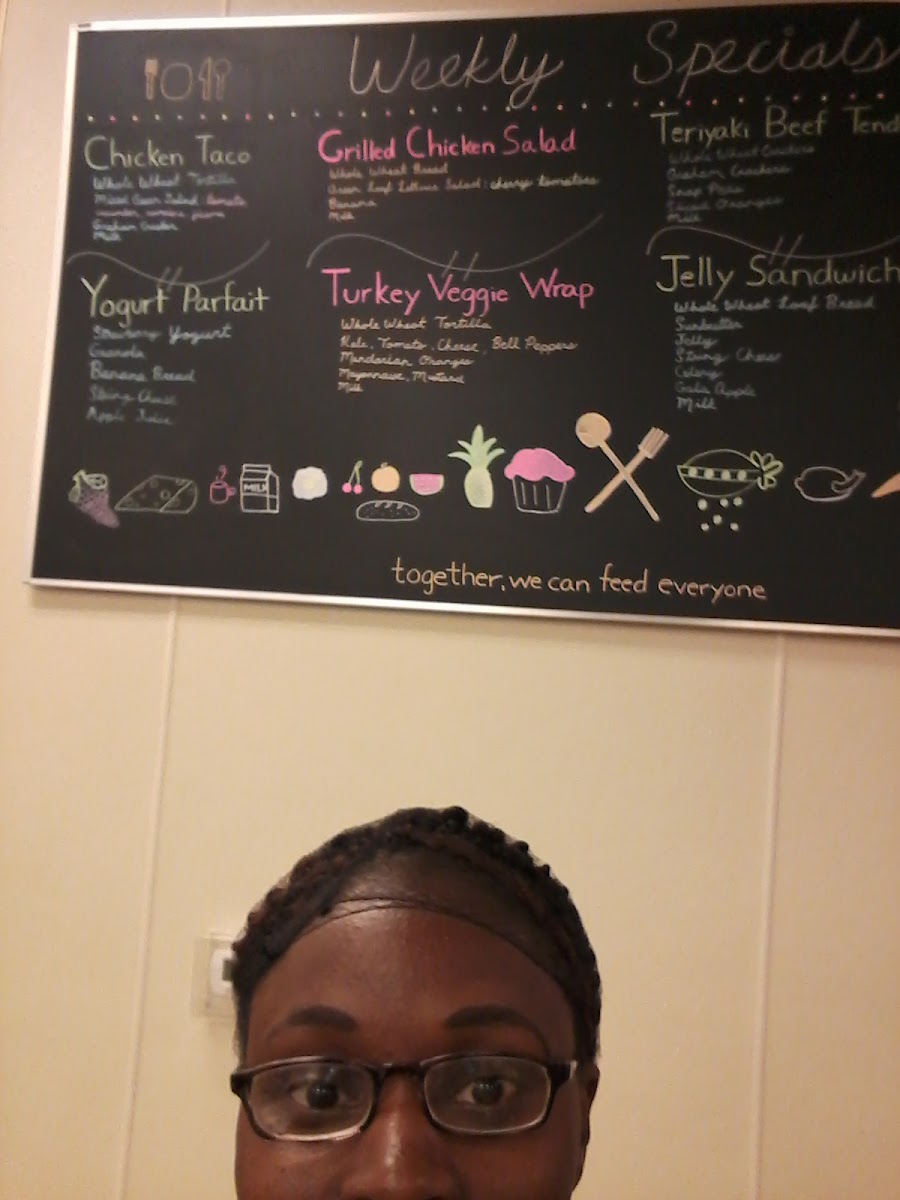 Weekly Specials
Chicken Taco
Whole Wheat Tortilla
Mixed Green Salad: tomato
Graham Cracker
Milk
Grilled Chicken Salad
Whole Wheat Bread
Green Leaf Lettuce Salad: cherry tomatoes
Banana
Milk
Teriyaki Beef Tend
Whole Wheat Crackers
Graham Crackers
Snap Peas
Sliced Oranges
Milk
Yogurt Parfait
Strawberry Yogurt
Granola
Banana Bread
String Cheese
Apple Juice
Turkey Veggie Wrap
Whole Wheat Tortilla
Kale, Tomato, Cheese, Bell Peppers
Mandarian Oranges
Mayonnaise, Mustard
Milk
Jelly Sandwich
Whole Wheat Loaf Bread
Sunbutter
Jelly
String Cheese
Celery
Gala Apple
Milk
MILK
together, we can feed everyone